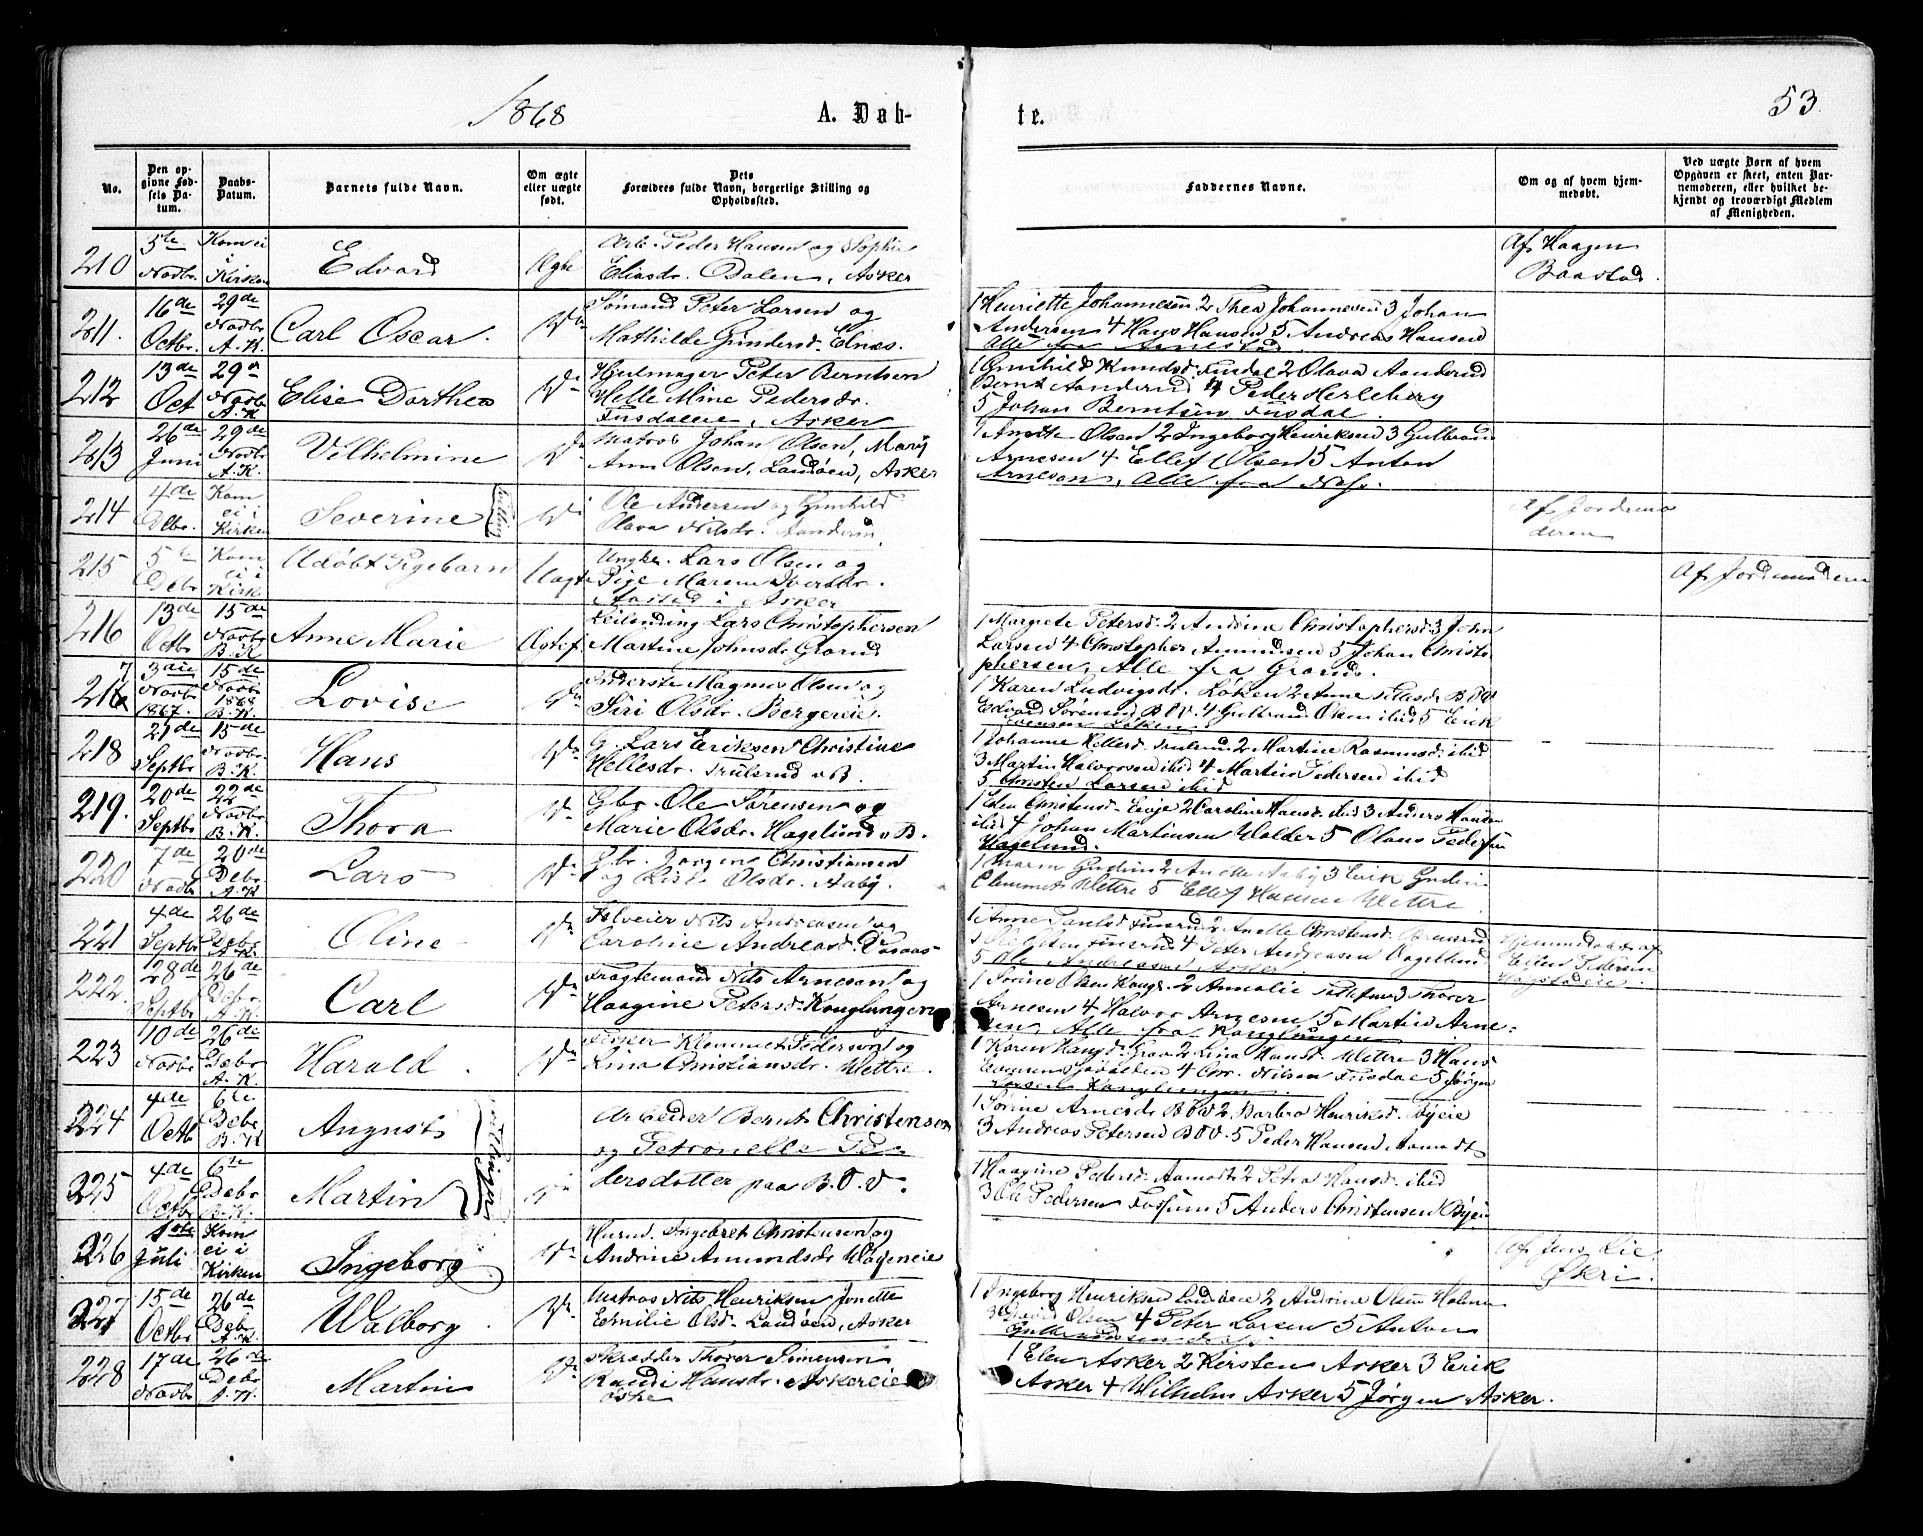 1868
A. Dåb-
te.
53.
No.
Den opgivne Fødsels Datum.
Daabs-Datum.
Barnets fulde Navn.
Om ægte eller uægte født.
Dets Forældres fulde Navn, borgerlige Stilling og Opholdssted.
Faddernes Navne.
Om og af hvem hjemmedøbt.
Ved uægte Børn af hvem Opgaven er skeet, enten Barnemoderen, eller hvilket bekjendt og troværdigt Medlem af Menigheden.
210 5te Novbr. Kom ei i Kirken Edvard Ægte Arb. Peder Hansen og Sophie
Eliasdr. Dalen, Asker
Af Haagen
Baastad.
211. 16de Octbr. 29de Novbr. A.K. Carl Oscar. Sømand Peter Larsen og
Mathilde Gundersd. Elnæs.
1 Henriette Johannesen 2 Thea Johannesen 3 Johan
Andersen 4 Hans Hansen 5 Andreas Hansen
Alle fra Arnestad
212 13de Oct 29 Novbr. A.K. Elise Dorthea Hjulmager Peter Berntsen
Helle Mine Pedersdr.
Fusdaleie, Asker
1 Gunhild Knudsd. Fusdal 2 Olava Aanderud
Bernt Aanderud 4 Peder Herleberg
5 Johan Berntsen Fusdal.
213 26de Juni 29de Novbr. A.K. Vilhelmine Matros Johan Olsen, Mary
Ann Olsen, Landøen, Asker
1 Anette Olsen 2 Ingeborg Henriksen 3 Gulbrand
Arnesen 4 Ellef Olsen 5 Anton
Arnesen, Alle fra Næs.
214 4de Kom ei i Kirken Severine Tvilling Ole Andersen og Gunhild
Olava Nilsdr. Aanderud.
Af Jordemo
deren
215 5te Debr. Kom ei i Kirk Udøbt Pigebarn Uægte Ungk. Lars Olsen og
Pige Maren Iversdr.
i Asker
Af Jordemoderen
216 13de Octbr 15de Novbr. B.K. Anne Marie Ægtef Leilending Lars Christophersen
Martine Johnsdr. Grønd
1 Margrete Petersd. 2 Andrine Christophersd. 3 John
Larsen 4 Christopher Amundsen 5 Johan Christo
phersen, Alle fra Grønd.
217 3die Novbr. 1867. 15de Novbr. 1868 B.K. Lovise Inderste Magnus Olsen og
Siri Olsdr. Bergereie.
1 Karen Ludvigsdr. Løken 2 Anne B O V
Edvard Sørensen B O V. 4 Gulbrand Olsen ibid 5 Erik
Evensen Løken
218 21de Septbr 15de Novbr. B.K. Hans G. Lars Eriksen Christine
Hellesdr. Trulsrud v B.
1 Johanne Hellesd. Trulsrud 2 Martine Rasmusd. ibid
3 Martin Halvorsen ibid 4 Martin Pedersen ibid
5 Christen Larsen ibid
219. 20de Septbr 22de Novbr. B.K. Thora Gbr. Ole Sørensen og
Marie Olsdr. Hagelund v B.
1 Elen Christensd. 2 Caroline Hansd. ibid 3 Anders Hansen
ibid 4 Johan Martinsen Walder 5 Olaus Pedersen
Hagelund.
220 7de Novbr. 20de Debr. A.K. Lars Gbr. Jørgen Christiansen
og Lise Olsdr. Aaby.
1 Maren Gudim 2 Anette Aaby 3 Erik Gudim
Clemmet Wettre 5 Ellef Hansen Wettre
221 4de Septbr 26de Debr. A.K. Oline Selveier Nils Andreasen og
Caroline Andreasd.
1 Anne 2 Anette Christensd.
4 Peter Andreasen
5 Ole Andreasen Asker
Hjemmedøbt af
Ellen Pedersen
222. 28de Septbr 26de Debr. A.K. Carl Fragtemand Nils Arnesen og
Haagine Petersd. Konglungen
1 Sørine Olsen Kongl. 2 3 Thorer
Arnesen 4 Halvor Arnesen 5 Martin Arne-
sen, Alle fra Konglungen
223 10de Novbr 26de Debr A.K. Harald. Fisker Klemmet Pedersen og
Lina Christiansdr. Wettre.
1 Karen Hansd. 2 Lina Hansd. Wettre 3 Hans
4 Chr. Nilsen Fusdal 5 Jørgen
Larsen Konglungen
224 4de Octb 6te Debr. B.K August Tvillinger Arbeider Bernt Christensen
og Petronelle Pe-
1 Sørine Arnesdr B O V 2 Barbra Henriksd. Byeie
3 Andreas Petersen B O V. 5 Peder Hansen Aamodt
225 4de Octbr 6te Debr B.K. Martin dersdatter paa B. O. V.
1 Haagine Pedersd. Aamodt 2 Petra Hansd. ibid
3 Ole Pedersen Fossum 5 Anders Christensen Byeie
226 1ste Juli Kom ei i Kirken Ingeborg Husm. Ingebret Christensen og
Andrine Amundsdr.
Af Jens Lie
Øster.
227 15de Octbr 26de Debr. A.K. Walborg Matros Nils Henriksen Jonette
Emilie Olsd. Landøen, Asker
1 Ingeborg Henriksen Landøen 2 Andrine Olsen
3 David Olsen 4 Peter Larsen 5 Anton
Gulbrandsen
228 17de Novbr 26de Debr A.K. Martin Skrædder Thorer Simensen
Randi Hansdr. Askereie
1 Elen Asker 2 Kirsten Asker 3 Erik
Asker 4 Wilhelm Asker 5 Jørgen Asker.